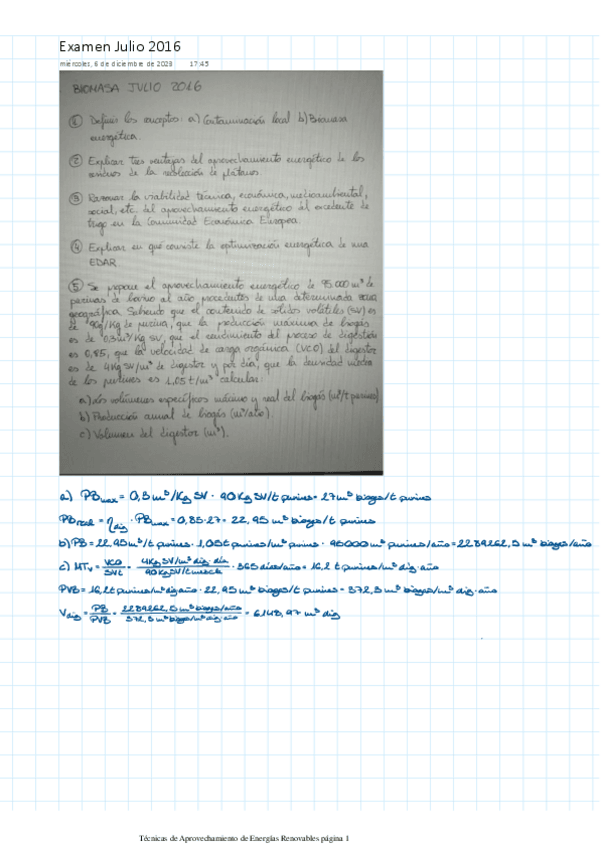 Examen Julio 2016
miércoles, 6 de diciembre de 2023 17:45
BIOMASA JULIO 2016
① Definir los conceptos: a) Contaminación local b) Biomasa
energética.
② Explicar tres ventajas del aprovechamiento energético de los
residuos de la recolección de plátanos.
③ Razonar la viabilidad técnica, económica, medioambiental,
social, etc. del aprovechamiento energético del excedente de
trigo en la Comunidad Económica Europea.
④ Explicar en qué consiste la optimización energética de una
EDAR.
⑤ Se propone el aprovechamiento energético de 95.000 m³ de
purines de porcino al año procedentes de una determinada zona
geográfica. Sabiendo que el contenido de sólidos volátiles (SV) es
de 90g/Kg de purina, que la producción máxima de biogás
es de 0,3m³/Kg SV, que el rendimiento del proceso de digestión
es 0,85, que la velocidad de carga orgánica (VCO) del digestor
es de 4 Kg SV/m³ de digestor y por día, que la densidad media
de los purines es 1,05 t/m³ calcular:
a) Los volúmenes específicos máximo y real del biogás (m³/t purines)
b) Producción anual de biogás (m³/año).
c) Volumen del digestor (m³).
a) PBmax = 0,3 m³/Kg SV · 90 Kg SV/t purines = 27 m³ biogas/t purines
PBreal = ηdig · PBmax = 0,85·27 = 22,95 m³ biogas/t purines
b) PB = 22,95 m³/t purines · 1,05 t purines/m³ purines · 95000 m³ purines/año = 2289262,5 m³ biogas/año
c) MTv = VCO/SVL = 4Kg SV/m³ dig·día / 90 Kg SV/t · 365 días/año = 16,2 t purines/m³ dig·año
PVB = 16,2 t purines/m³ dig·año · 22,95 m³ biogas/t purines = 372,3 m³ biogas/m³ dig·año
Vdig = PB/PVB = 2289262,5 m³ biogas/año / 372,3 m³ biogas/m³ dig·año = 6148,97 m³ dig
Técnicas de Aprovechamiento de Energías Renovables página 1